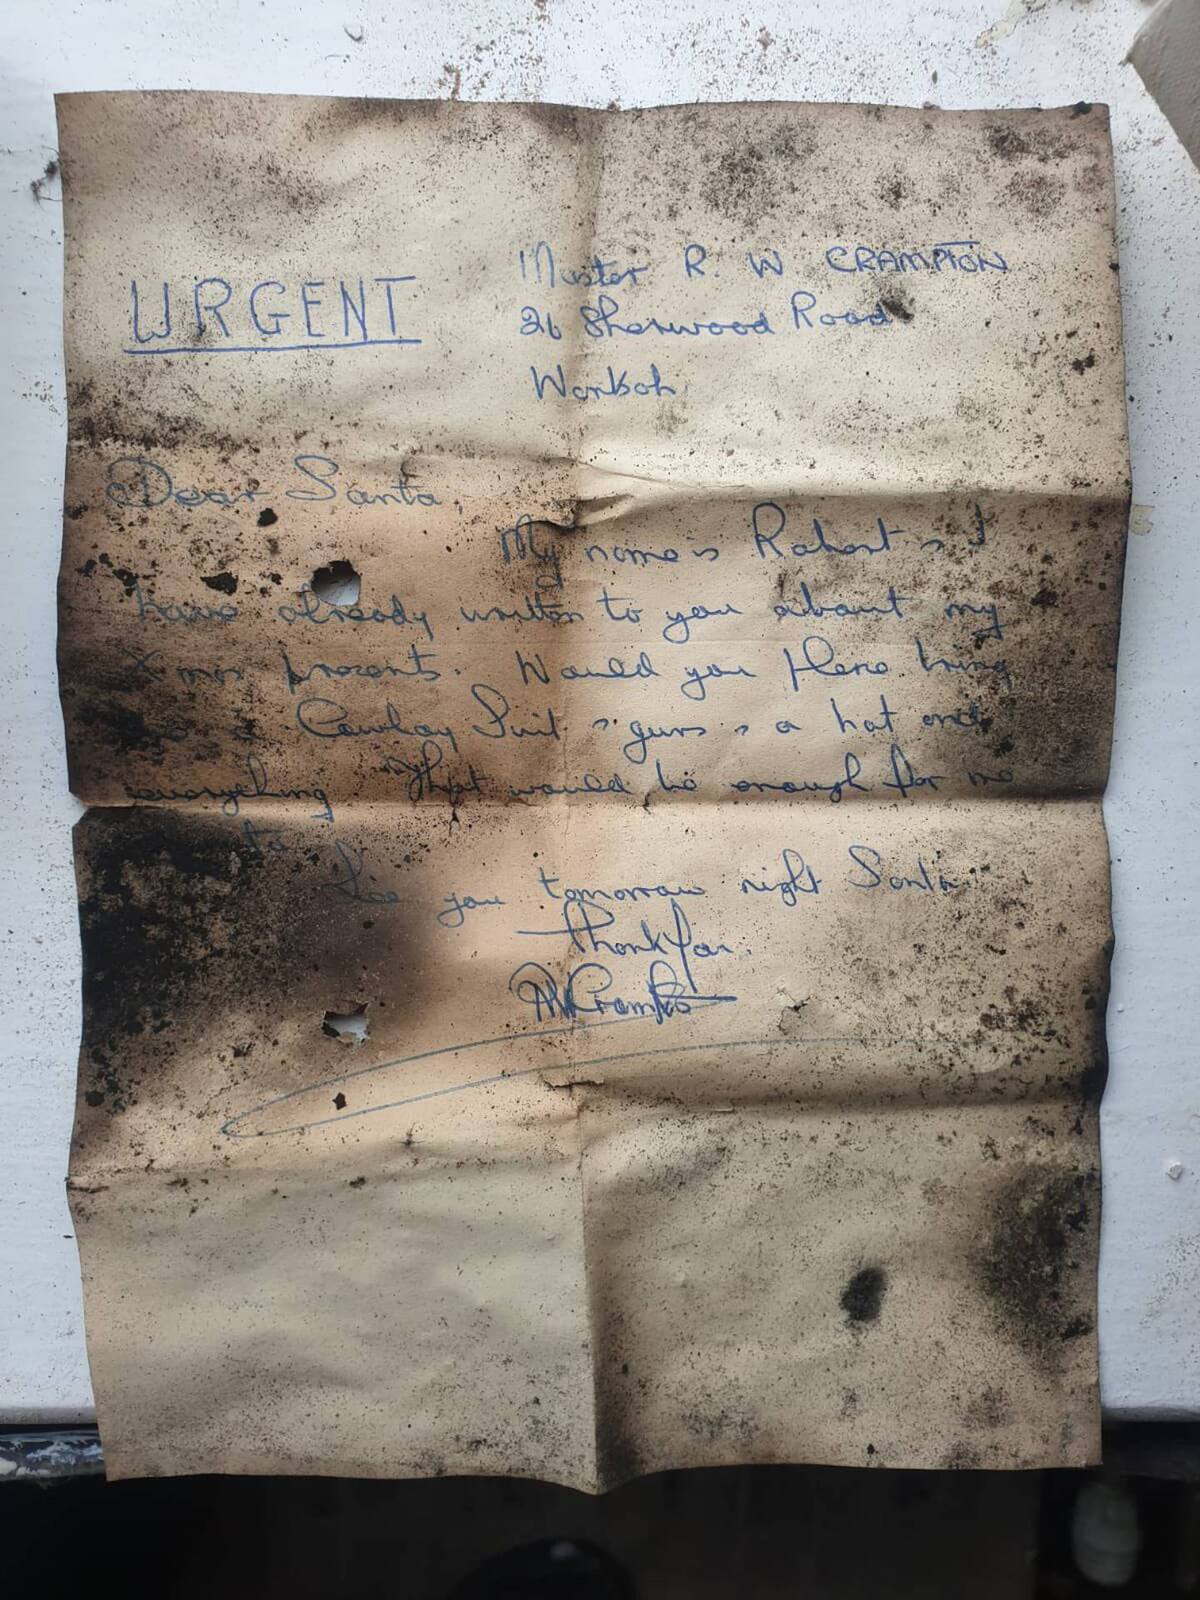 URGENT
Master R. W CRAMPTON
26 Sherwood Road
Worksop
Dear Santa,
My name is Robert & I
have already written to you about my
Xmas presents. Would you please bring
me a Cowboy Suit & guns & a hat and
everything That would be enough for me
See you tomorrow night Santa
Thank You.
RWCrampton